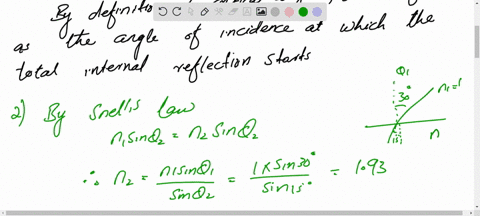 By definition
as the angle of incidence at which the
total internal reflection starts
θ1
30°
n1=1
n
15°
2) By snell's law
n1 sinθ2 = n2 sinθ2
∴ n2 = n1 sinθ1 / sinθ2 = 1 x sin30° / sin15° = 1.93